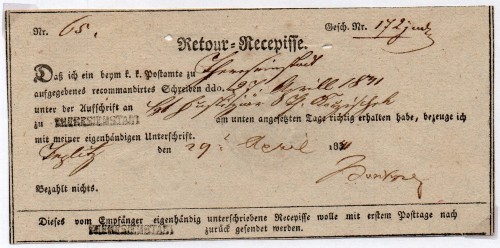 Nr. 65. Gesch. Nr. 172
Retour-Recepisse.
Daß ich ein beym k. k. Postamte zu Theresienstadt
aufgegebenes recommandirtes Schreiben ddo. 27 Aprill 1831
unter der Aufschrift an
zu THERESIENSTADT am unten angesetzten Tage richtig erhalten habe, bezeuge ich
mit meiner eigenhändigen Unterschrift.
den 29. April 1831
Bezahlt nichts.
Dieses vom Empfänger eigenhändig unterschriebene Recepisse wolle mit erstem Posttage nach
THERESIENSTADT zurück gesendet werden.